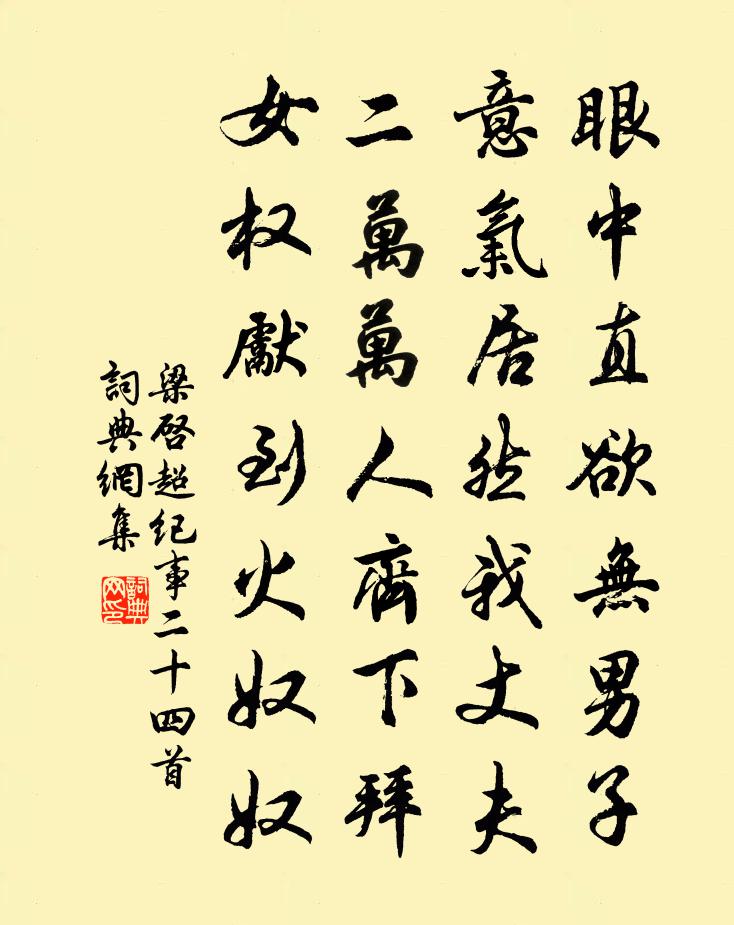 眼中直欲無男子
意氣居然我丈夫
二萬萬人齊下拜
女权獻到火奴奴
梁啓超纪事二十四首
詞典網集